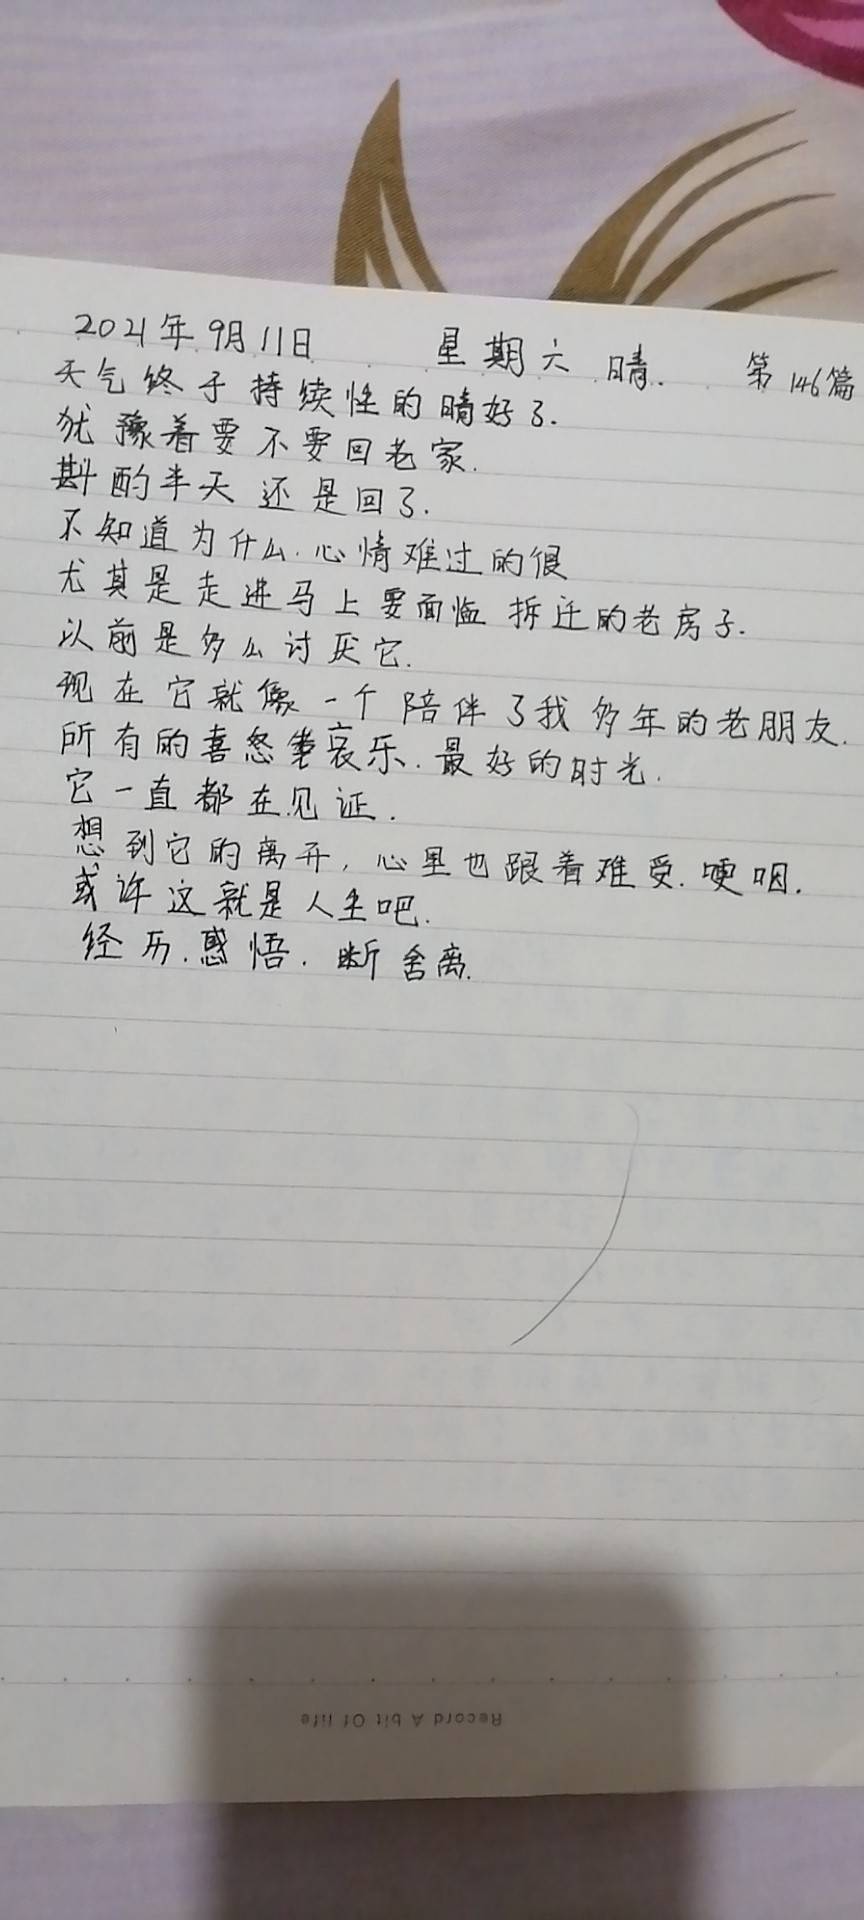 2021年9月11日 星期六 晴. 第146篇
天气终于持续性的晴好了.
犹豫着要不要回老家.
斟酌半天还是回了.
不知道为什么.心情难过的很
尤其是走进马上要面临拆迁的老房子.
以前是多么讨厌它.
现在它就像一个陪伴了我多年的老朋友.
所有的喜怒哀乐.最好的时光.
它一直都在见证.
想到它的离开,心里也跟着难受.哽咽.
或许这就是人生吧.
经历.感悟.断舍离.
Record A bit Of life